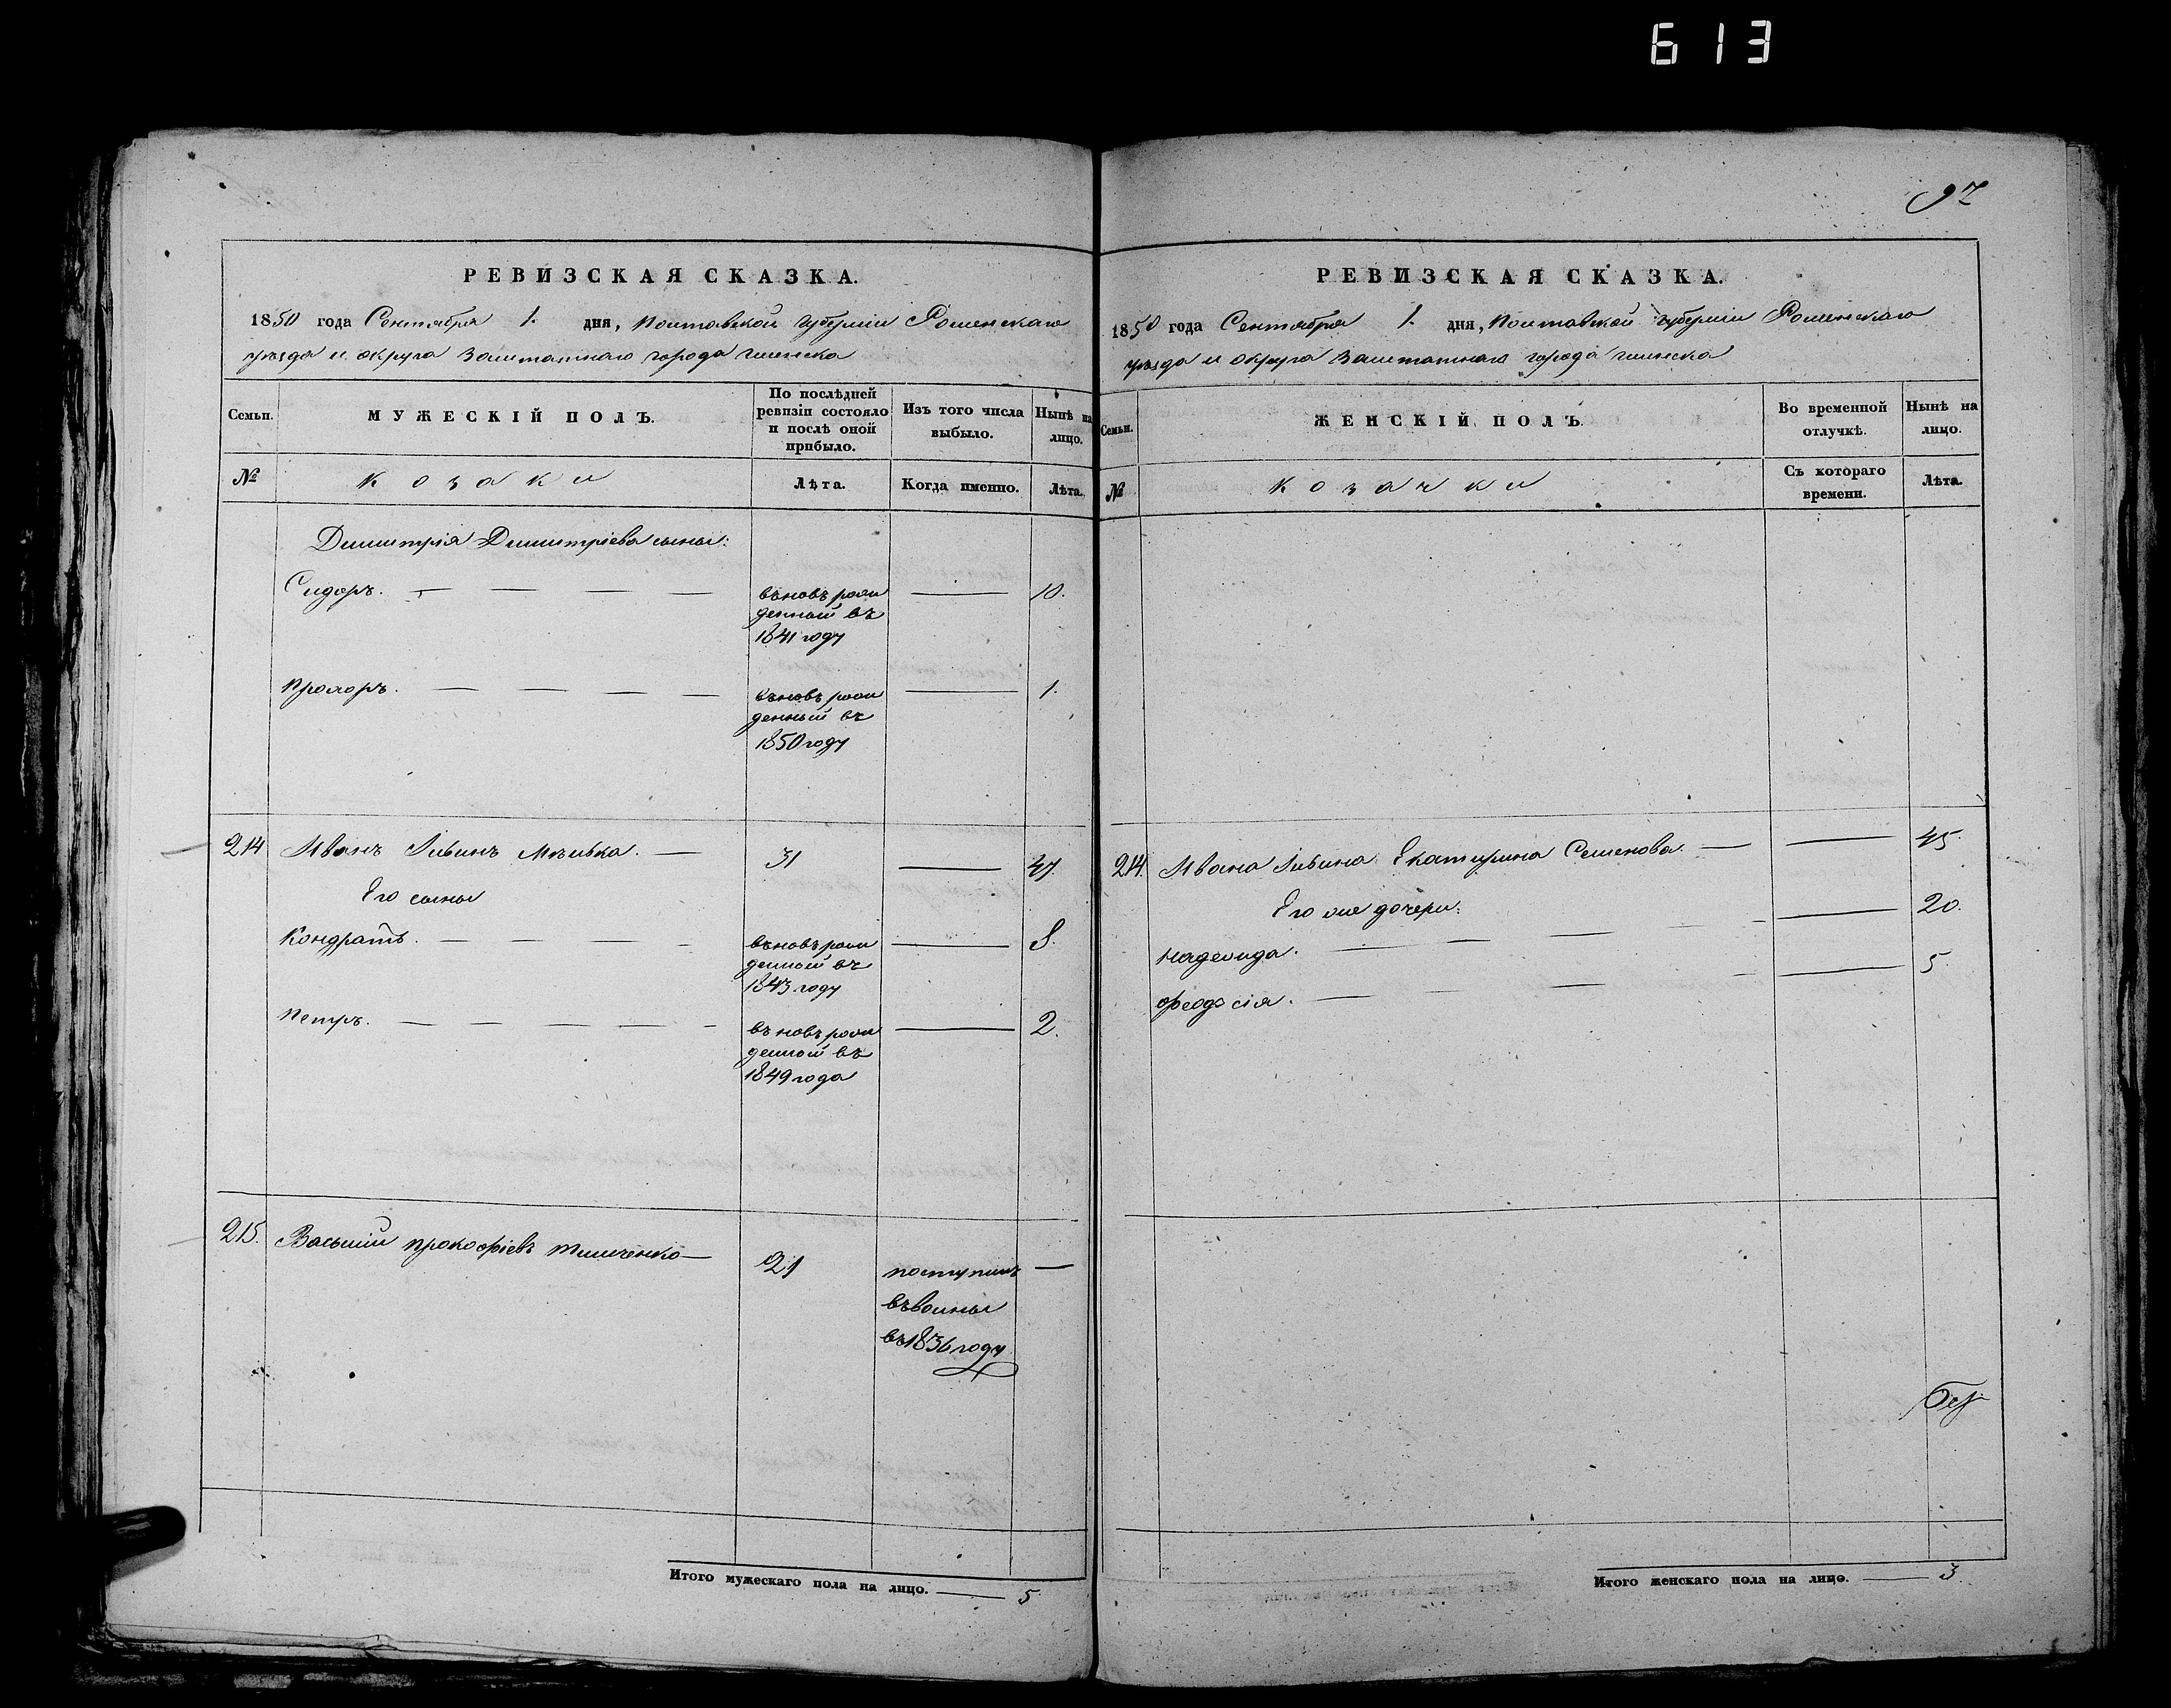 613
97
РЕВИЗСКАЯ СКАЗКА.
1850 года Сентября 1. дня, Полтавской губерніи Роменскаго
уѣзда и округа заштатнаго города Глинска
Семьи. МУЖЕСКІЙ ПОЛЪ. По послѣдней ревизіи состояло и послѣ оной прибыло. Изъ того числа выбыло. Нынѣ на лицо.
№ Козаки Лѣта. Когда именно. Лѣта.
Димитрія Димитріева сыны:
Сидоръ. вновь рож 10.
денный въ
1841 году
Прохоръ. вновь рож 1.
денный въ
1850 году
214 Иванъ Іивинъ 31 47.
Его сыны
Кондратъ. вновь рож 8.
денный въ
1843 году
Петръ. вновь рож 2.
денный въ
1849 года
215. Василій Прокофіевъ Тимченко 21 поступилъ
въ воины
въ 1836 году
Итого мужескаго пола на лицо. 5
РЕВИЗСКАЯ СКАЗКА.
1850 года Сентября 1. дня, Полтавской губерніи Роменскаго
уѣзда и округа заштатнаго города Глинска
Семьи. ЖЕНСКІЙ ПОЛЪ. Во временной отлучкѣ. Нынѣ на лицо.
№ Козачки Съ котораго времени. Лѣта.
214. Ивана Іивина Екатирина Семенова. 45.
Его же дочери: 20.
Надежда. 5.
Феодосія.
Итого женскаго пола на лицо. 3